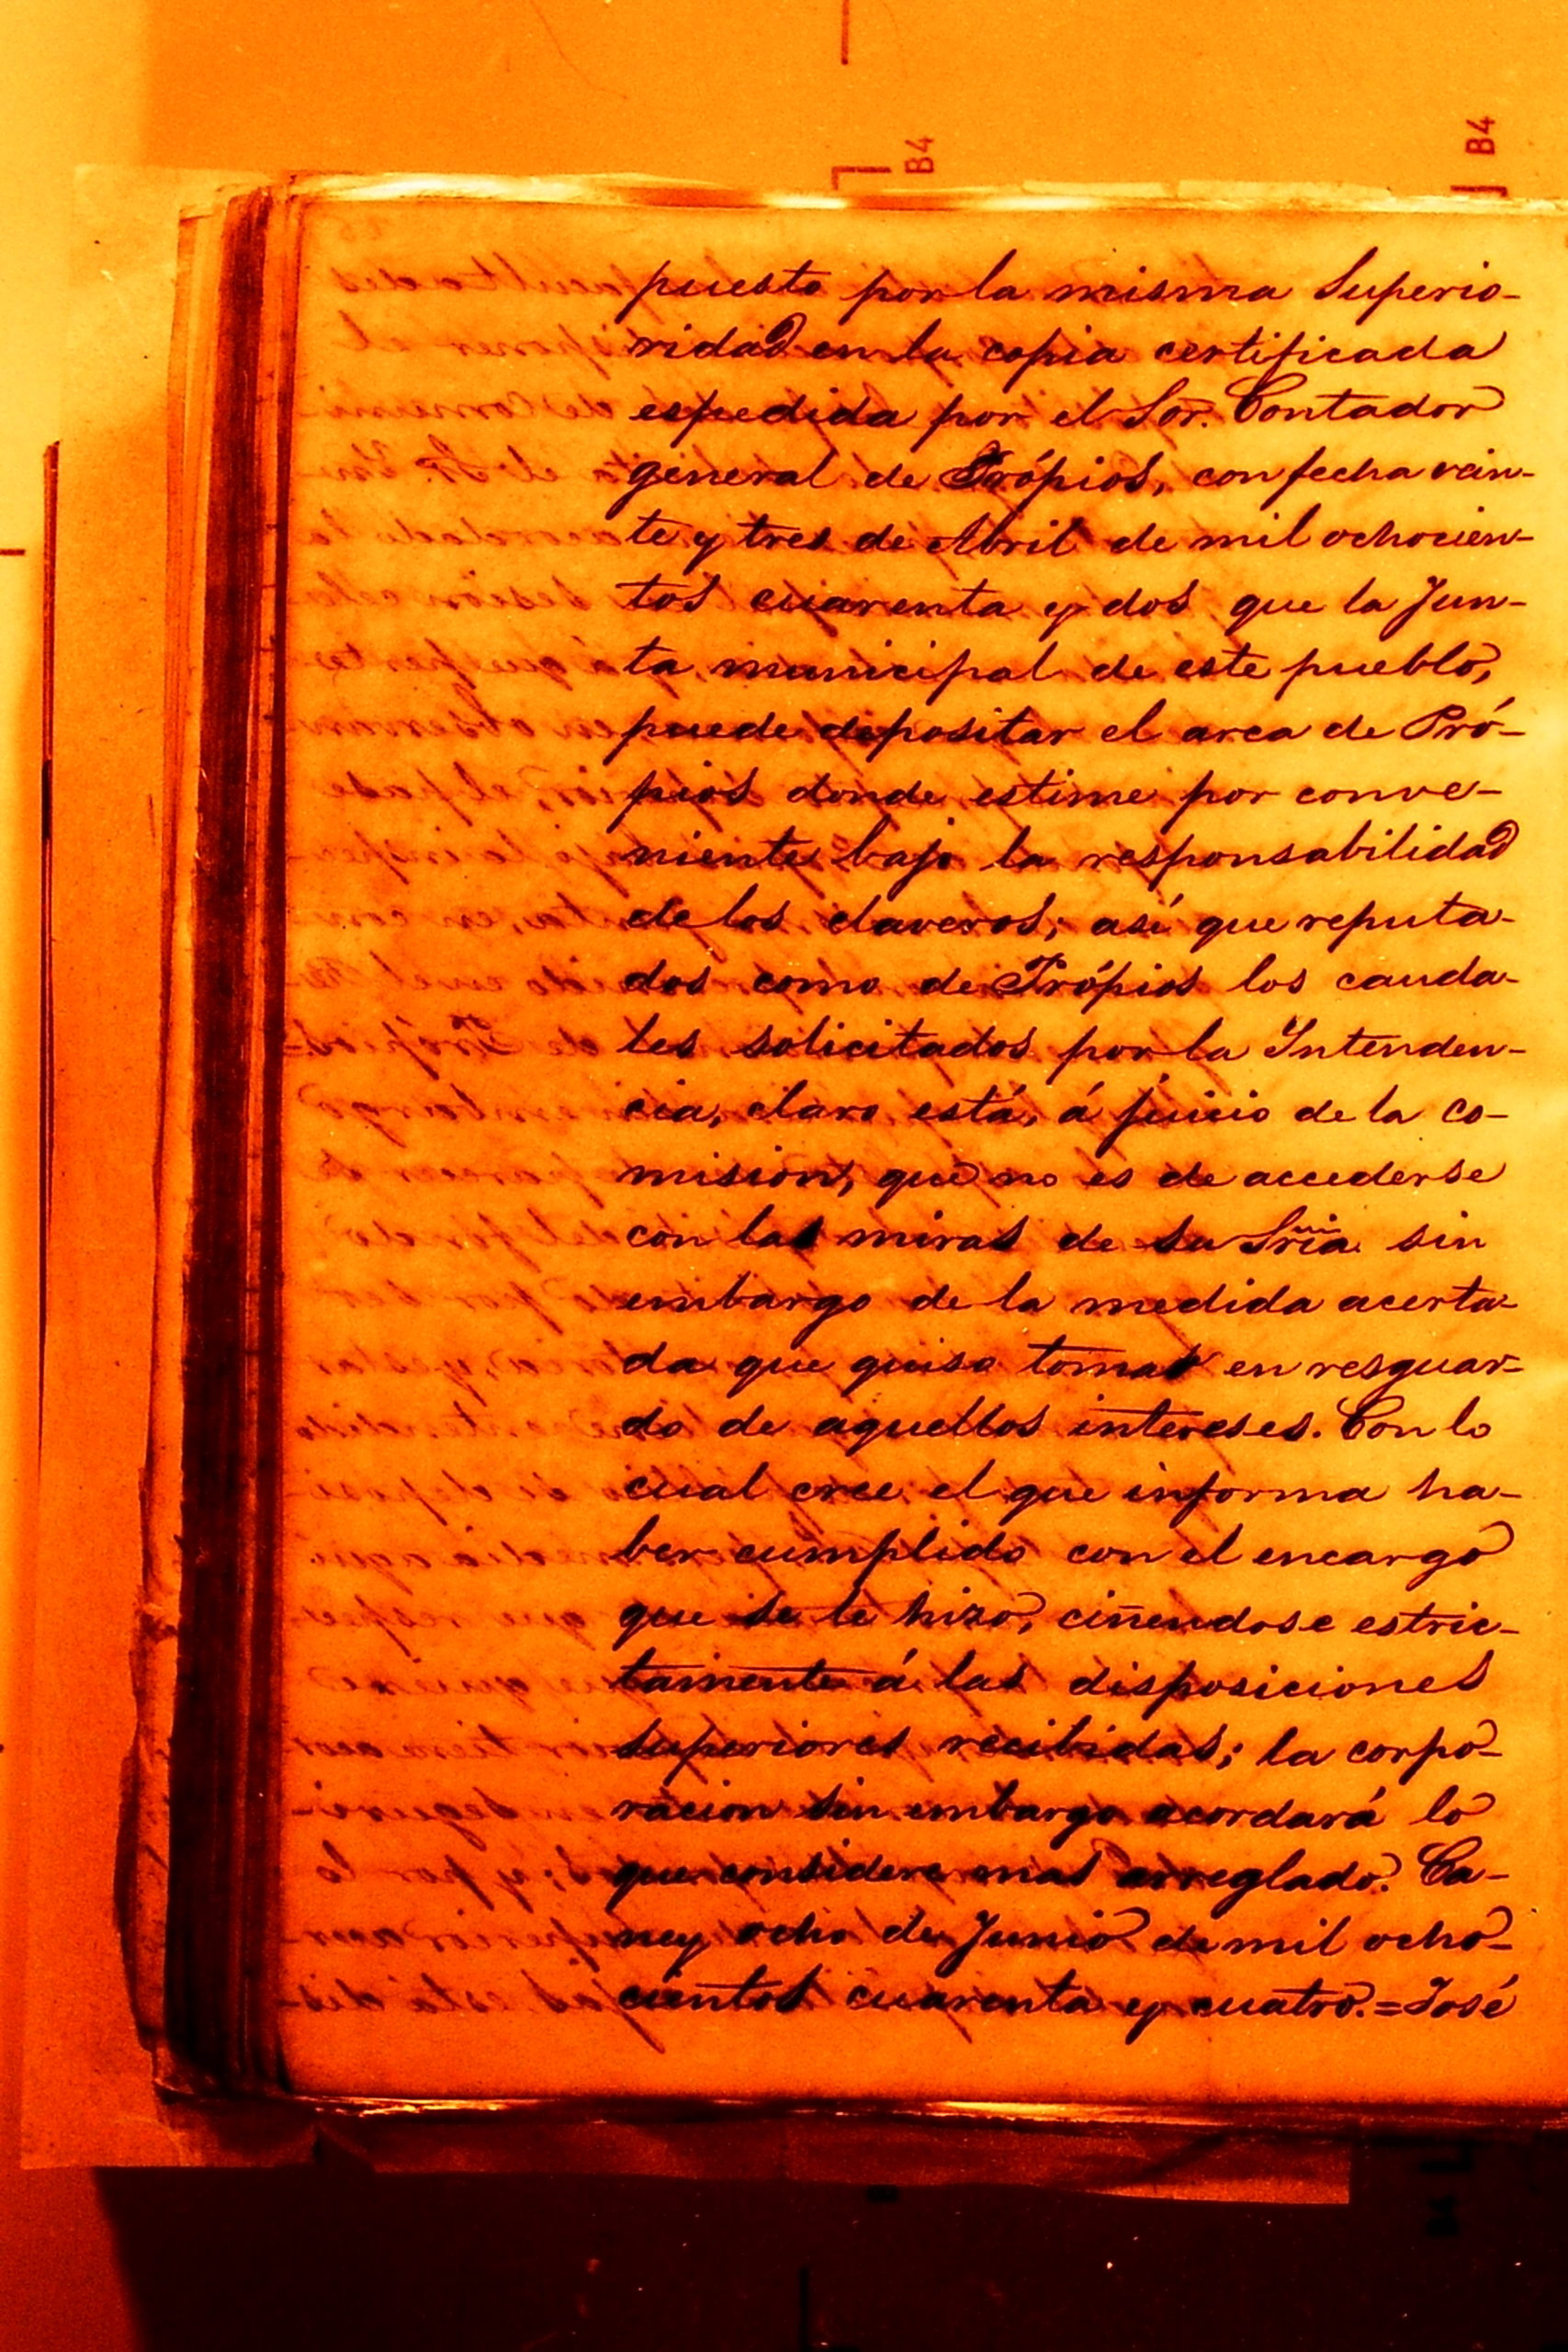 B4
B4
puesto por la misma Superio-
ridad en la copia certificada
espedida por el Sor. Contador
general de Própios, con fecha vein-
te y tres de Abril de mil ochocien-
tos cuarenta y dos que la Jun-
ta municipal de este pueblo,
puede depositar el arca de Pró-
pios donde estime por conve-
niente bajo la responsabilidad
de los claveros; así que reputa-
dos como de Própios los cauda-
les solicitados por la Intenden-
cia, claro está, á juicio de la co-
mision, que no es de accederse
con las miras de su Sria. sin
embargo de la medida acerta-
da que quiso tomar en resguar-
do de aquellos intereses. Con lo
cual cree el que informa ha-
ber cumplido con el encargo
que se le hizo, ciñendose estric-
tamente á las disposiciones
superiores recibidas; la corpo-
racion sin embargo acordará lo
que considere mas arreglado. Ca-
ney ocho de Junio de mil ocho-
cientos cuarenta y cuatro. = José